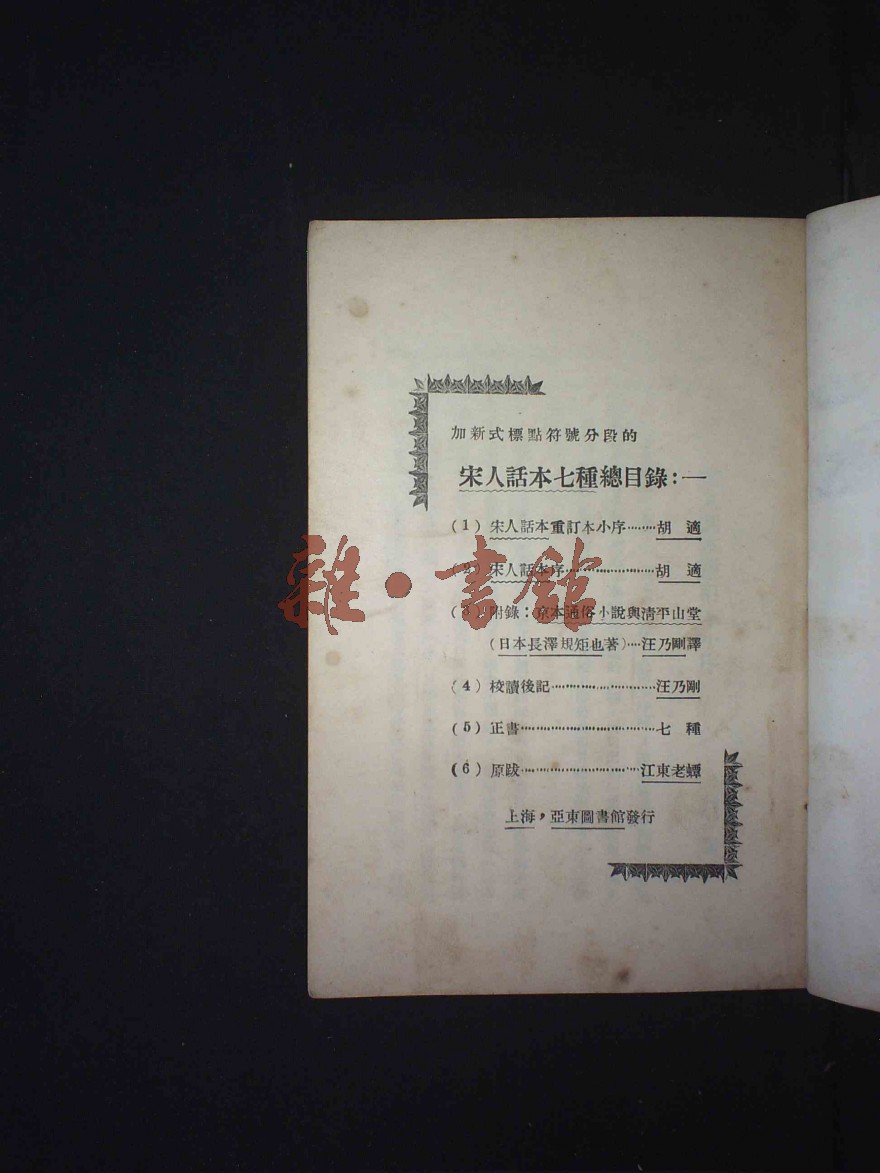 加新式標點符號分段的
宋人話本七種總目錄：—
(1) 宋人話本重訂本小序………胡適
(2) 宋人話本序…………………胡適
(3) 附錄：京本通俗小說與清平山堂
(日本長澤規矩也著)…汪乃剛譯
(4) 校讀後記……………………汪乃剛
(5) 正書…………………………七種
(6) 原跋…………………………江東老蟫
上海，亞東圖書館發行
雜·書館